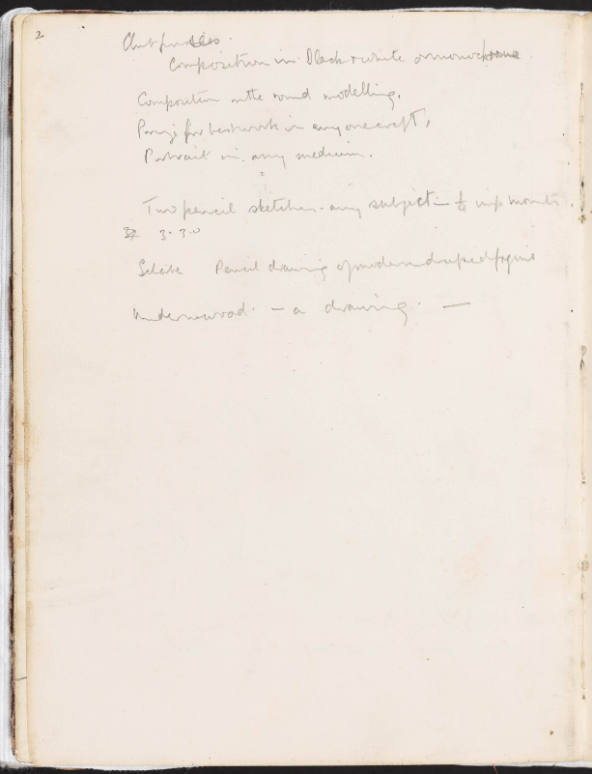 2
Club
Composition in Black & white or monochrome
Composition in the round modelling.
Prize for best work in any one craft,
Portrait in any medium.
Two pencil sketches - any subject - ½ imp mounts.
3.30
Pencil drawing of modern draped figure
Underwood. - a drawing. -